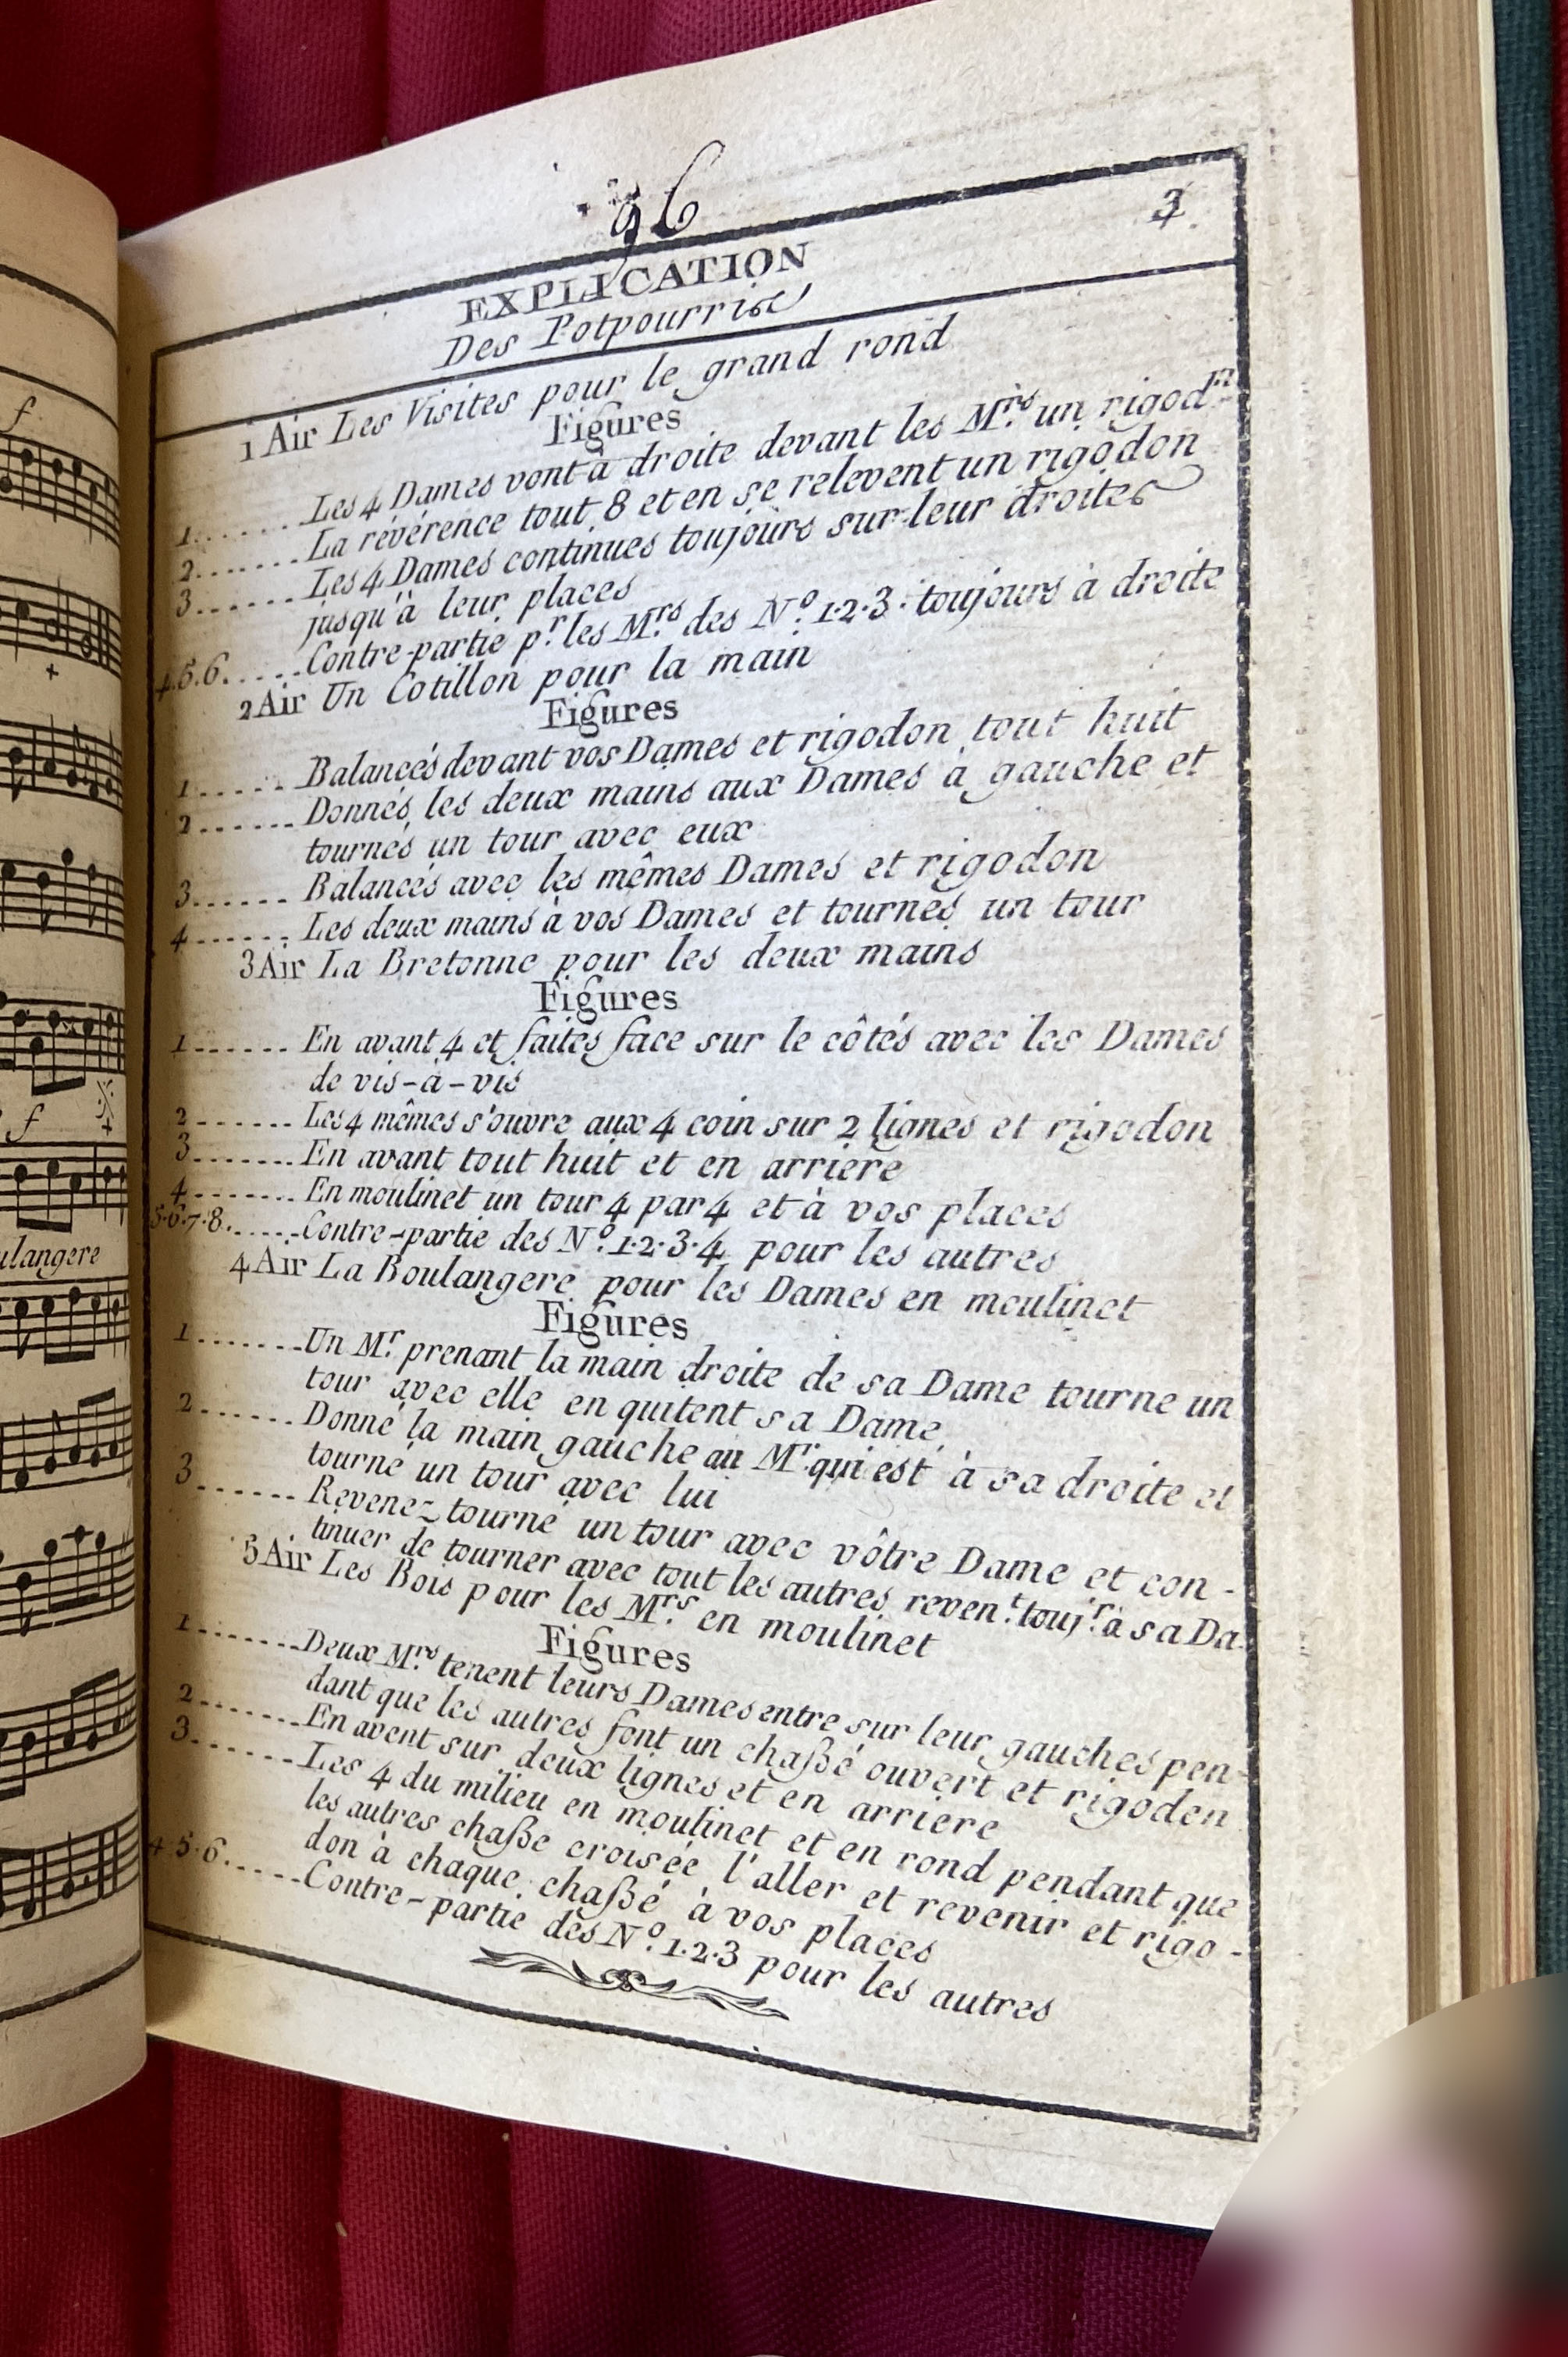 96
3
EXPLICATION
Des Potpourris
1 Air Les Visites pour le grand rond
Figures
1....... Les 4 Dames vont à droite devant les M.rs un rigod.n
2....... La révérence tout 8 et en se relevent un rigodon
3....... Les 4 Dames continues toujours sur leur droites
jusqu'à leur places
4.5.6..... Contre-partie p.r les M.rs des N.o 1.2.3. toujours à droite
2 Air Un Cotillon pour la main
Figures
1....... Balancés devant vos Dames et rigodon tout huit
2....... Donnés les deux mains aux Dames à gauche et
tournés un tour avec eux
3....... Balancés avec les mêmes Dames et rigodon
4....... Les deux mains à vos Dames et tournés un tour
3 Air La Bretonne pour les deux mains
Figures
1....... En avant 4 et faites face sur le côtés avec les Dames
de vis-à-vis
2....... Les 4 mêmes s'ouvre aux 4 coin sur 2 lignes et rigodon
3....... En avant tout huit et en arriere
4....... En moulinet un tour 4 par 4 et à vos places
5.6.7.8..... Contre-partie des N.o 1.2.3.4 pour les autres
4 Air La Boulangere pour les Dames en moulinet
Figures
1....... Un M.r prenant la main droite de sa Dame tourne un
tour avec elle en quitent sa Dame
2....... Donné la main gauche au M.r qui est à sa droite et
tourné un tour avec lui
3....... Revenez tourné un tour avec vôtre Dame et con-
tinuer de tourner avec tout les autres reven.t touj.r à sa Da.
5 Air Les Bois pour les M.rs en moulinet
Figures
1....... Deux M.rs tenent leurs Dames entre sur leur gauches pen-
dant que les autres font un chaßé ouvert et rigodon
2....... En avent sur deux lignes et en arriere
3....... Les 4 du milieu en moulinet et en rond pendant que
les autres chaße croisée l'aller et revenir et rigo-
don à chaque chaßé à vos places
4.5.6..... Contre-partie des N.o 1.2.3 pour les autres
f
f
ulangere